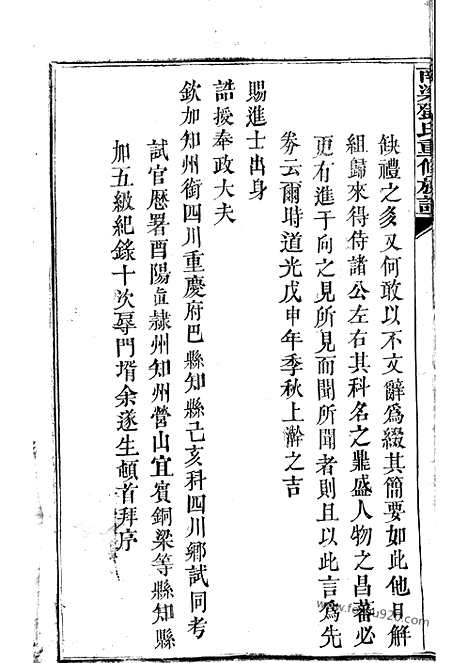 南梁鄧氏重修族譜
缺禮之多又何敢以不文辭爲綴其簡要如此他日解
組歸來得侍諸公左右其科名之鼎盛人物之昌蕃必
更有進于向之見所見而聞所聞者則且以此言爲先
劵云爾時道光戊申年季秋上澣之吉
賜進士出身
誥授奉政大夫
欽加知州銜四川重慶府巴縣知縣己亥科四川鄉試同考
試官歷署酉陽直隸州知州營山宜賓銅梁等縣知縣
加五級紀錄十次辱門壻余遂生頓首拜序